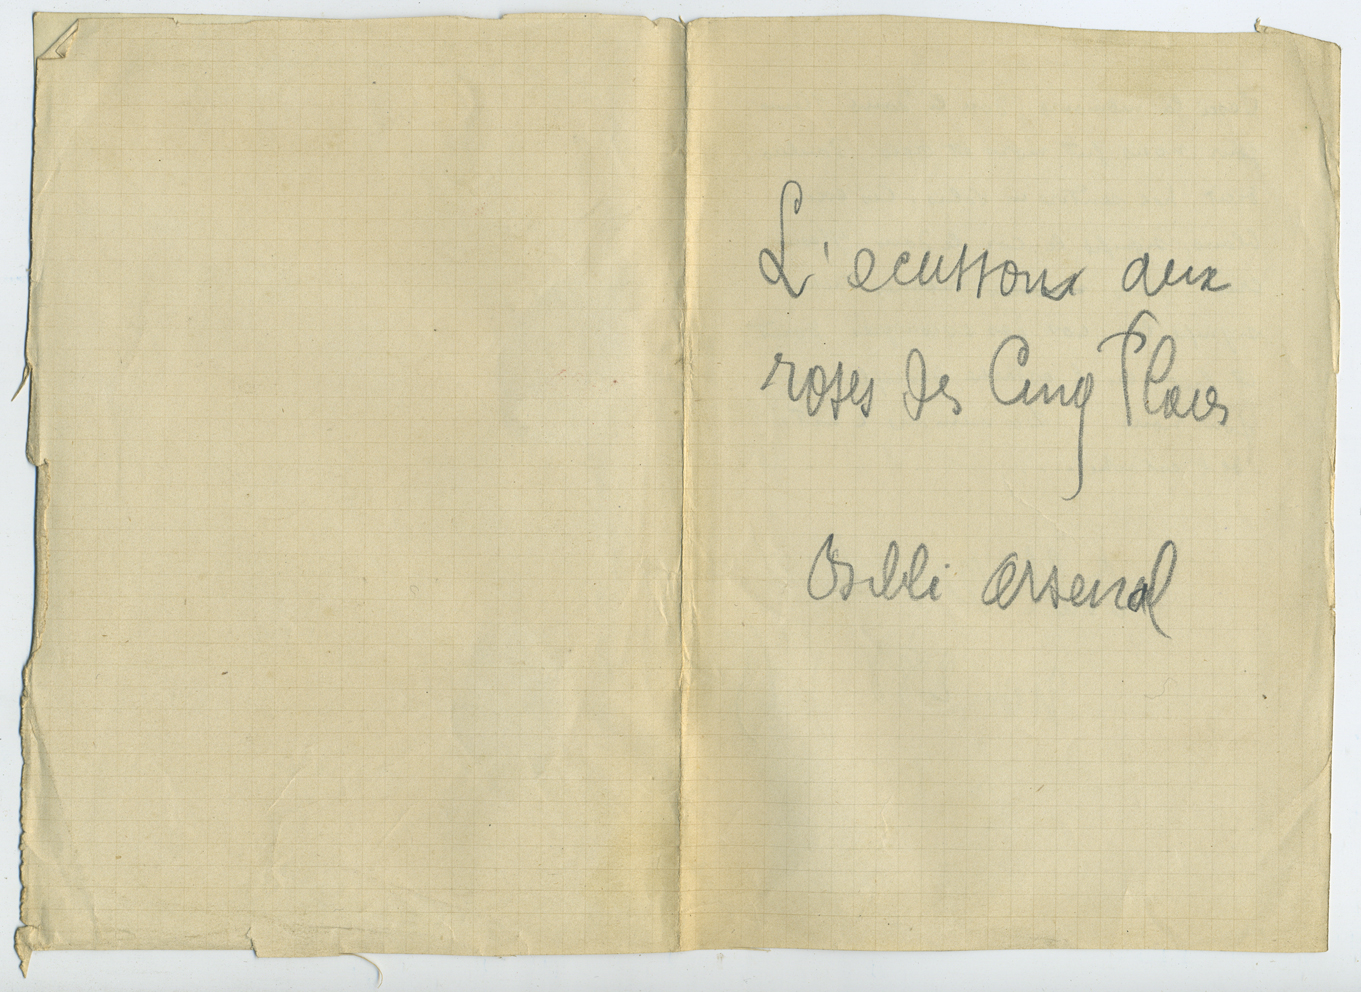 L'ecussons aux
roses des Cinq Plaies
arsenal